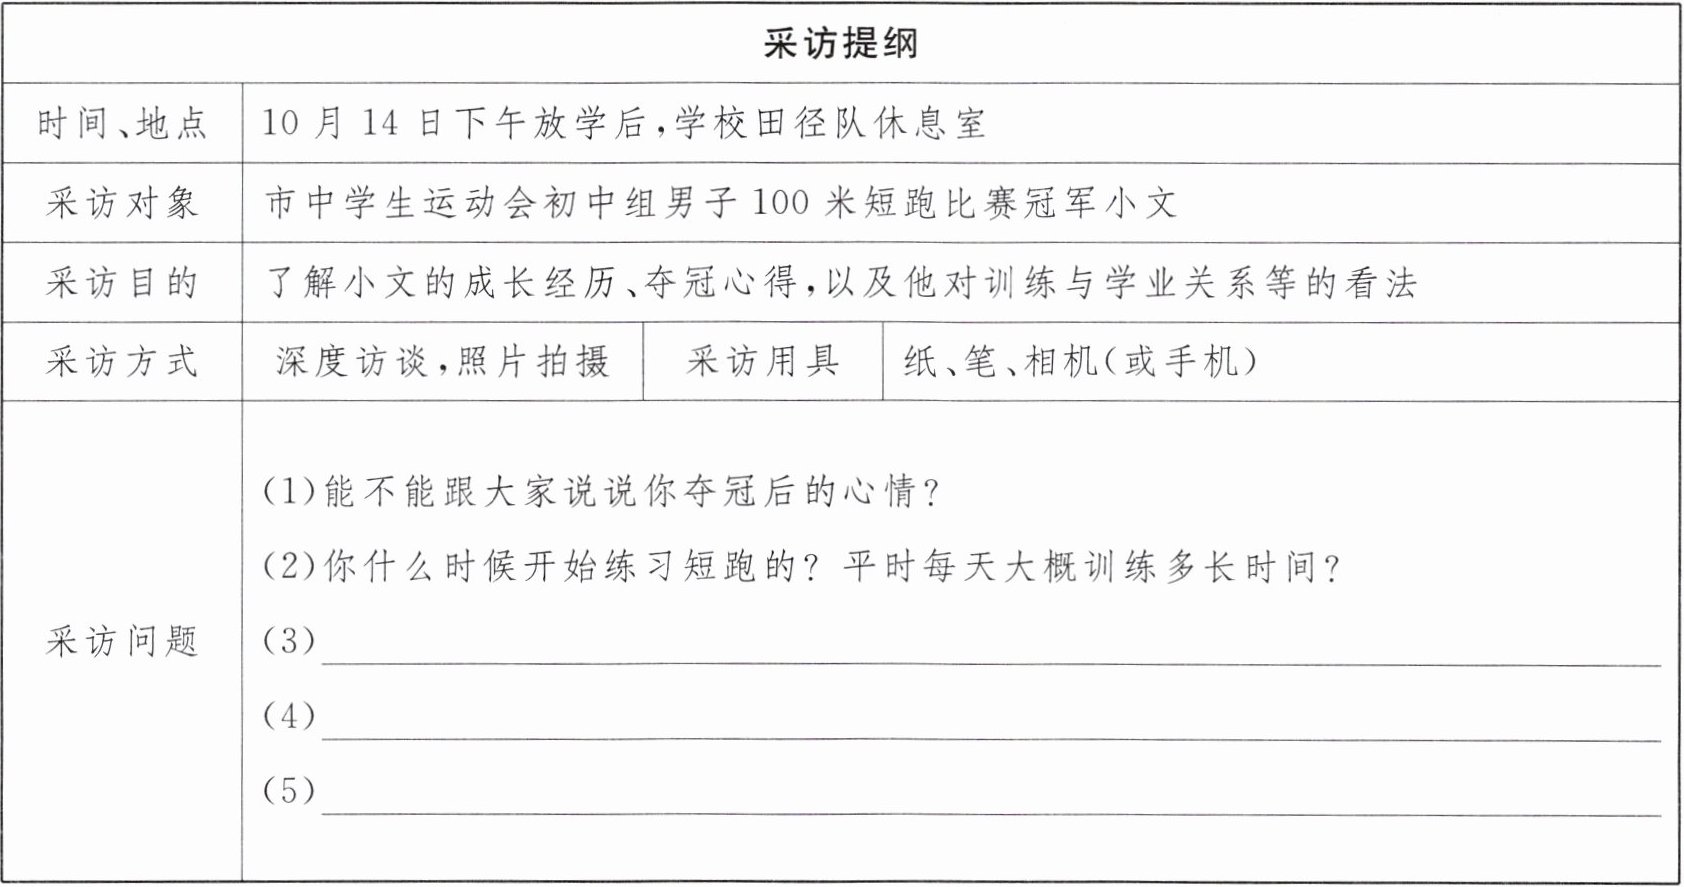 采访提纲
时间、地点 10月14日下午放学后,学校田径队休息室
采访对象 市中学生运动会初中组男子100米短跑比赛冠军小文
采访目的 了解小文的成长经历、夺冠心得,以及他对训练与学业关系等的看法
采访方式 深度访谈,照片拍摄 采访用具 纸、笔、相机(或手机)
采访问题
(1)能不能跟大家说说你夺冠后的心情?
(2)你什么时候开始练习短跑的? 平时每天大概训练多长时间?
(3)
(4)
(5)